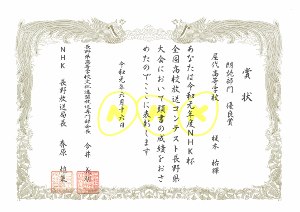 賞状
朗読部門 優良賞
屋代高等学校
あなたは令和元年度NHK杯
全国高校放送コンテスト長野県
大会において頭書の成績をおさ
めたのでここに表彰します
令和元年六月十六日
長野県高等学校文化連盟放送専門部会長 今井
NHK 長野放送局長 春原